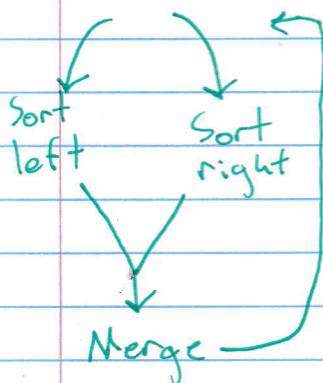 Sort
left
Sort
right
Merge